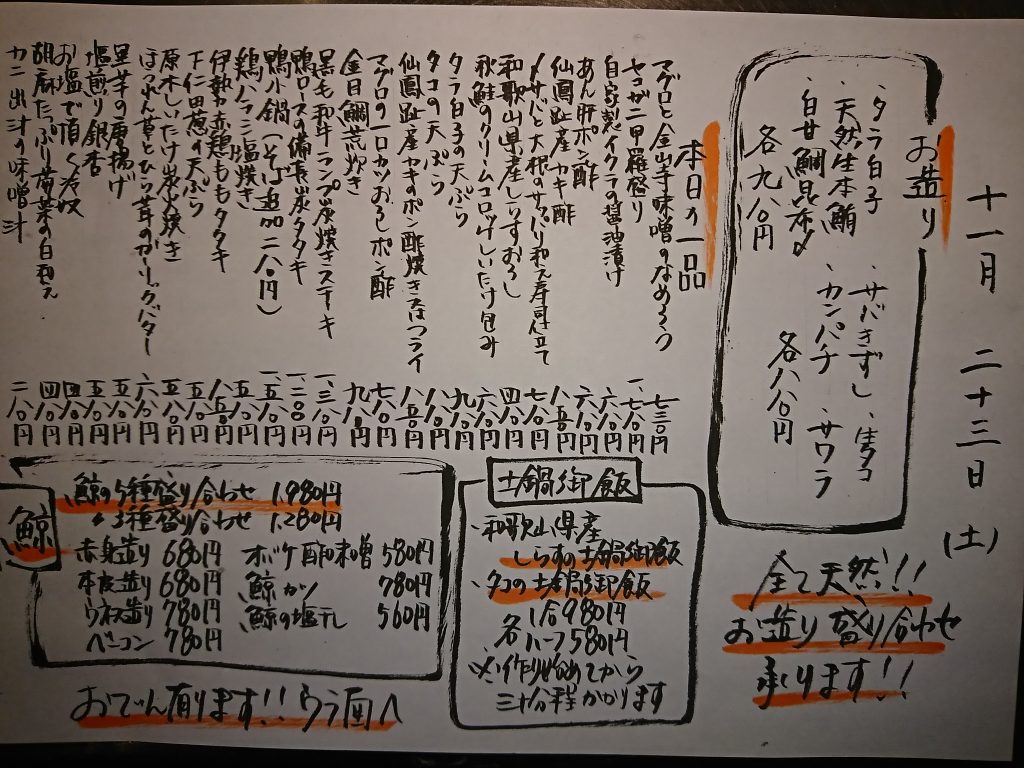 十一月 二十三日 (土)
お造り
・タラ白子
・天然生本鮪
・白甘鯛昆布〆
各九八〇円
・サバきずし ・生タコ
・カンパチ ・サワラ
各八八〇円
全て天然!!
お造り盛り合わせ
承ります!!
本日の一品
マグロと金山寺味噌のなめろう 七三〇円
セコガニ甲羅盛り 一、七八〇円
自家製イクラの醤油漬け 六八〇円
あん肝ポン酢 六八〇円
仙鳳趾産カキ酢 八五〇円
〆サバと大根のサッパリ和え寿司仕立て 七八〇円
和歌山県産しらすおろし 四八〇円
秋鮭のクリームコロッケしいたけ包み 六八〇円
タラ白子の天ぷら 九八〇円
タコの天ぷら 八八〇円
仙鳳趾産カキのポン酢焼き又はフライ 八五〇円
マグロの一口カツおろしポン酢 七八〇円
金目鯛荒炊き 九八〇円
黒毛和牛ランプ炭焼きステーキ 一、八三〇円
鴨ロースの備長炭タタキ 一、二八〇円
鴨小鍋(そば追加二八〇円) 一、五八〇円
鶏ハラミ塩焼き 五八〇円
伊勢赤鶏ももタタキ 八五〇円
下仁田葱の天ぷら 五八〇円
原木しいたけ炭火焼き 五八〇円
ほうれん草とひら茸のガーリックバター 六八〇円
里芋の唐揚げ 五五〇円
塩煎り銀杏 五八〇円
お塩で頂く冷奴 四八〇円
胡麻たっぷり春菊の白和え 四八〇円
カニ出汁の味噌汁 二八〇円
土鍋御飯
・和歌山県産
しらすの土鍋御飯
・タコの土鍋御飯
各 1合980円
ハーフ580円
※作り始めてから
三十分程かかります
鯨
鯨の5種盛り合わせ 1,980円
〃 3種盛り合わせ 1,280円
赤身造り 680円 ボケ酢味噌 580円
本皮造り 680円 鯨カツ 780円
ウネ造り 780円 鯨の塩干し 560円
ベーコン 780円
おでん有ります!! ウラ面へ